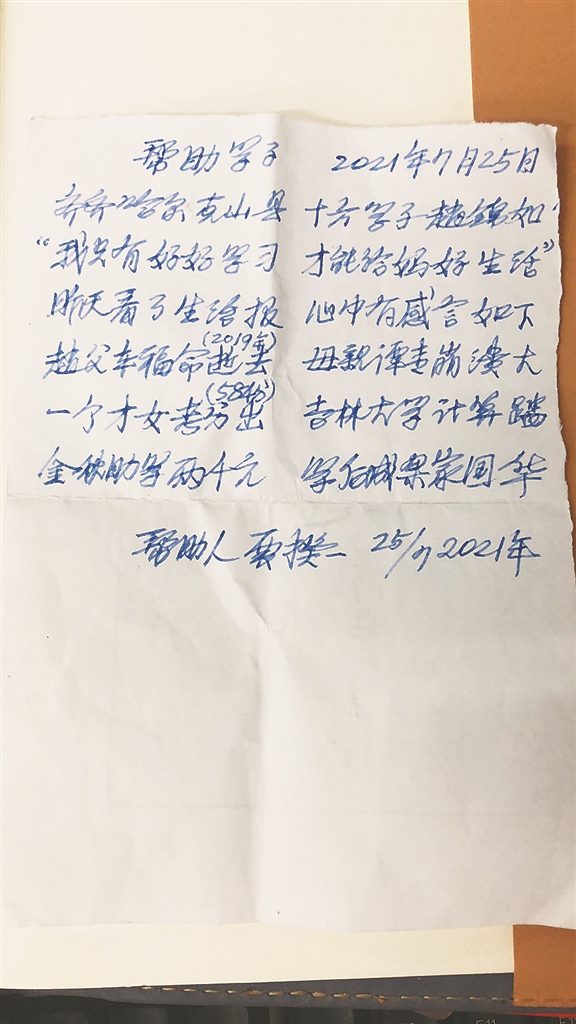 帮助学子 2021年7月25日
齐齐哈尔克山县 十六学子赵锦如
“我只有好好学习 才能给妈好生活”
昨天看了生活报 心中有感言如下
(2019年)
赵父幸福命逝去 母亲谭杰崩溃大
(584分)
一个才女考分出 吉林大学计算
金秋助学两千元 学后成梁家国华
帮助人 25/7 2021年